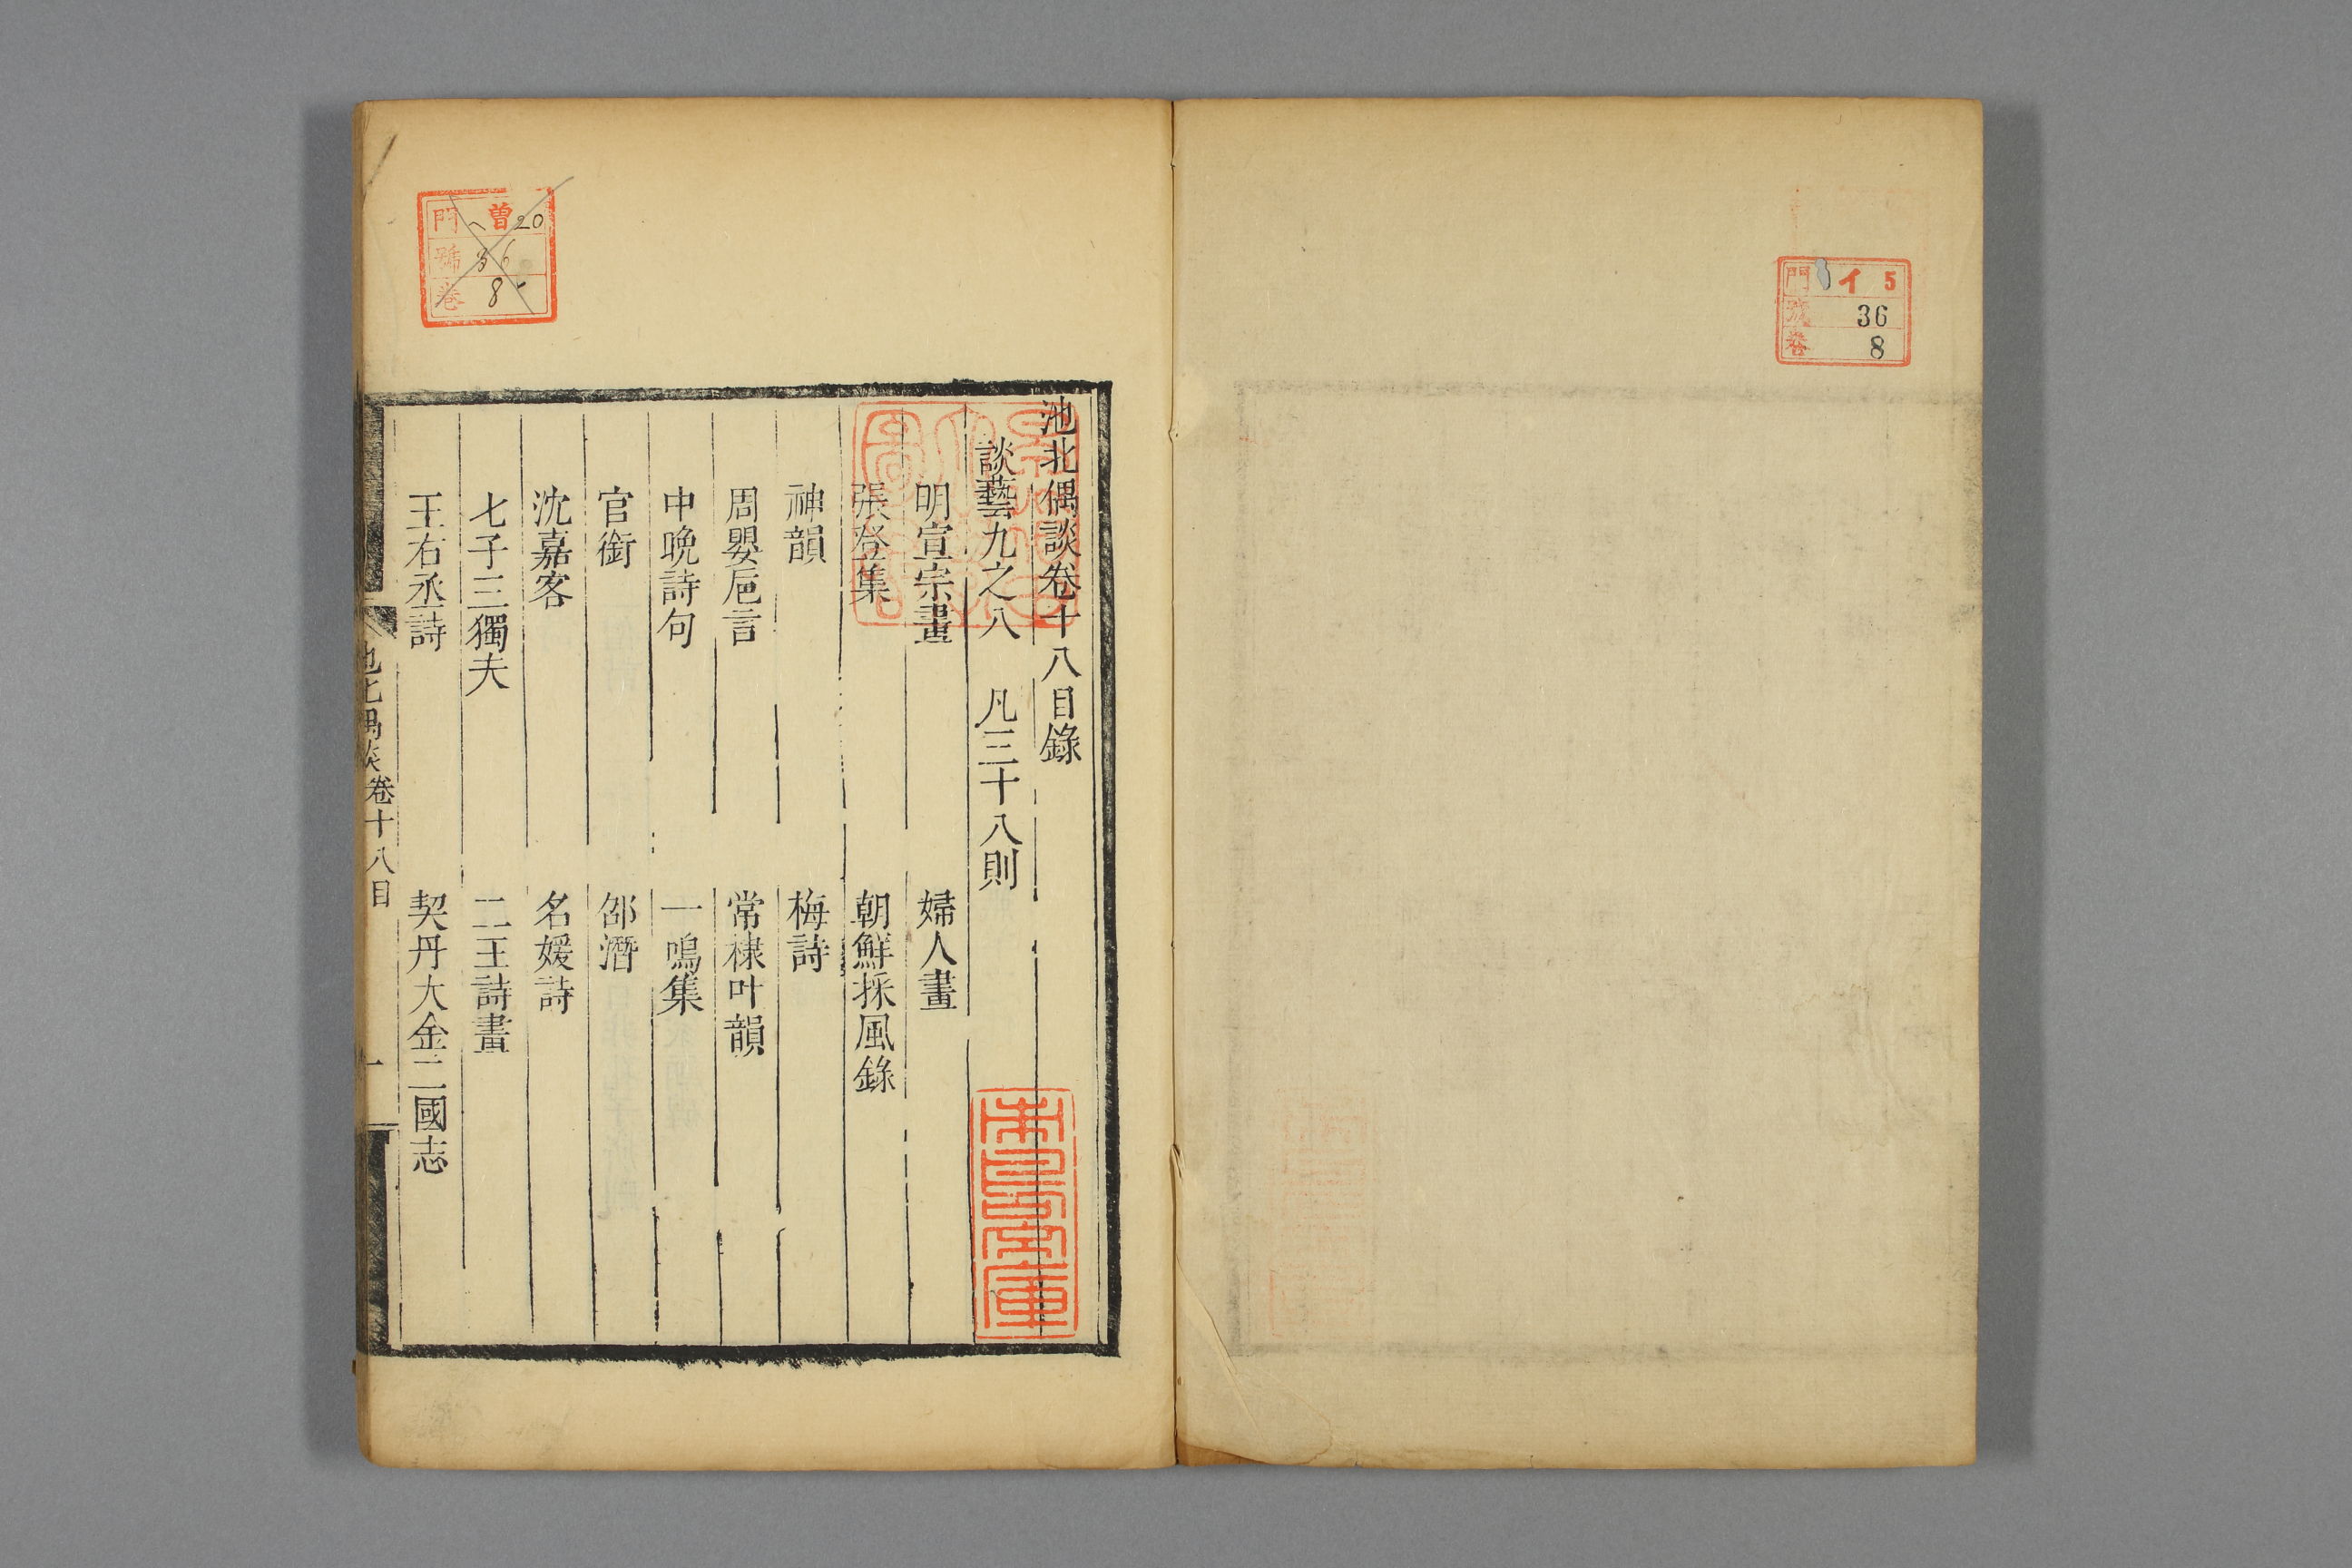 門 イ 5
號 36
卷 8
池北偶談卷十八目錄
談藝九之八　凡三十八則
明宣宗畫　婦人畫
張登集　朝鮮採風錄
神韻　梅詩
周嬰巵言　常棣叶韻
中晚詩句　一鳴集
官銜　邵潛
沈嘉客　名媛詩
七子三獨夫　二王詩畫
王右丞詩　契丹大金二國志
池北偶談卷十八目　一
門 曾 20
號 36
卷 8